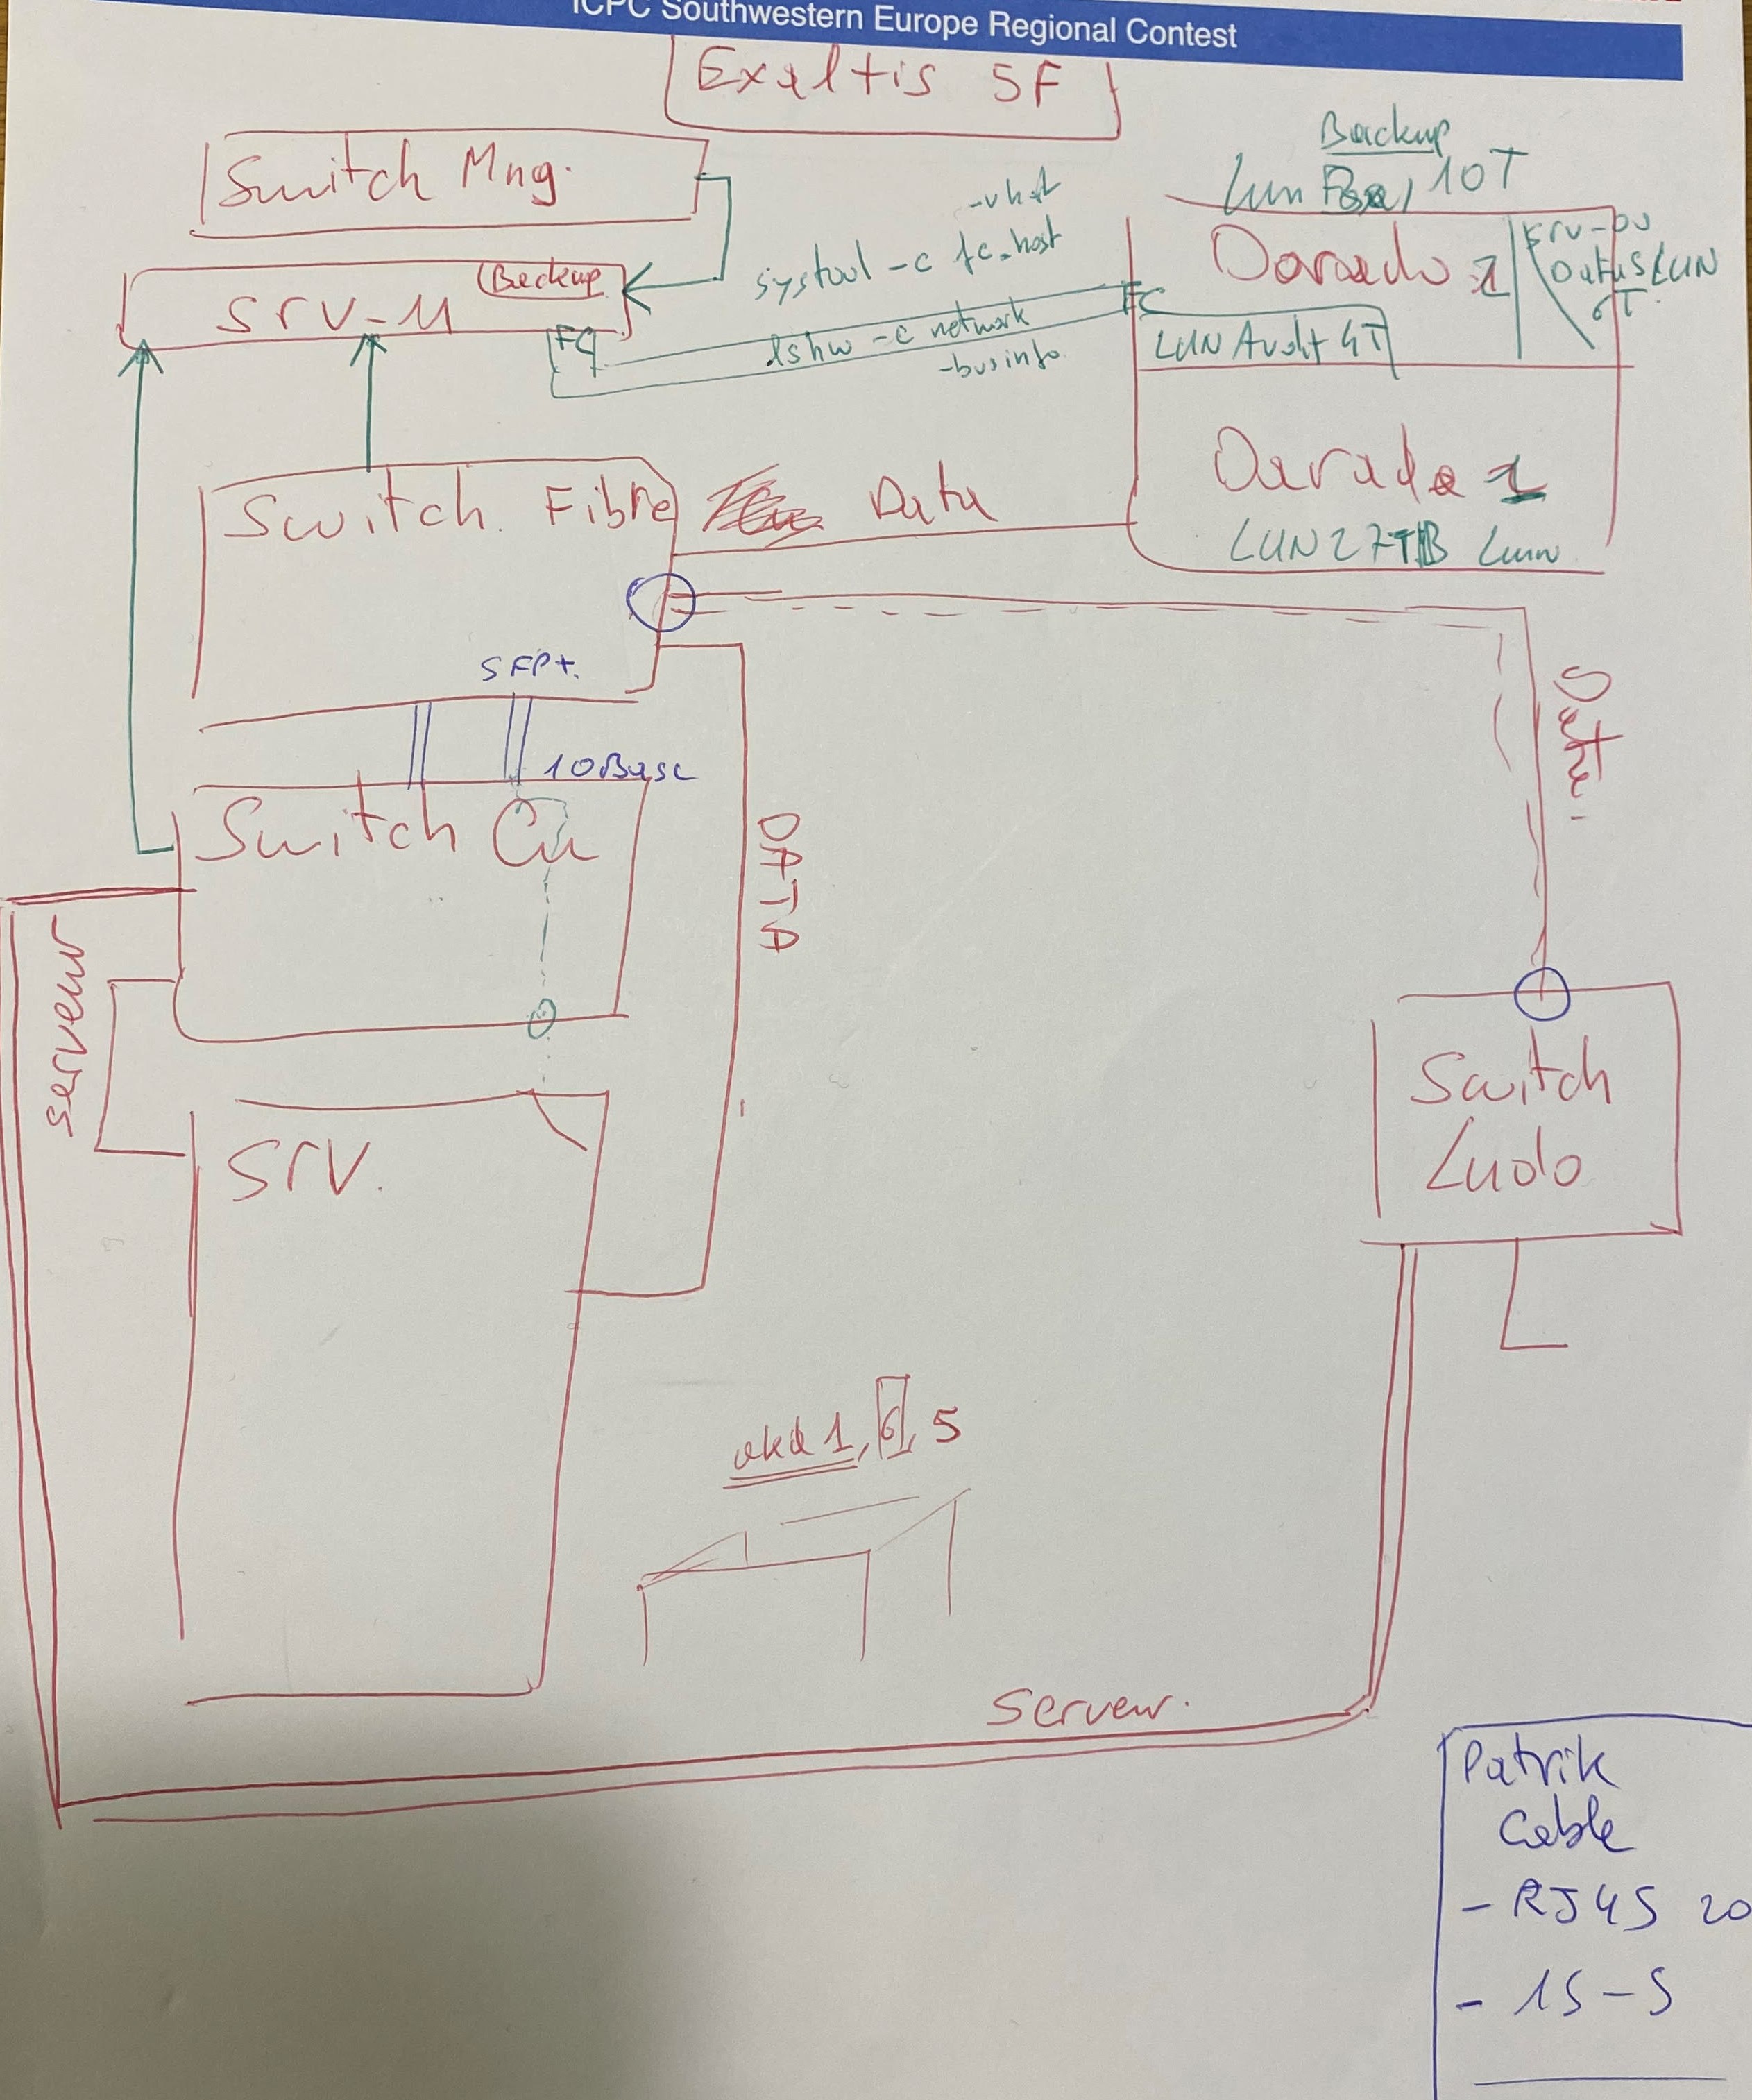 ICPC Southwestern Europe Regional Contest
Exaltis SF
Switch Mng.
Backup
Lun 10T
-v hst
systool -c fc_host
Backup
srv-11
FC
lshw -c network
-businfo
FC
Dorado 2
srv-
LUN
6T
LUN Audit 4T
Switch Fibre
Data
Dorado 1
LUN 27TB Lun
SFP+.
10Base
Data
Switch Cu
DATA
serveur
Switch
Ludo
srv.
1, 6, 5
serveur.
Patrik
Cable
- RJ45 20
- 15-5